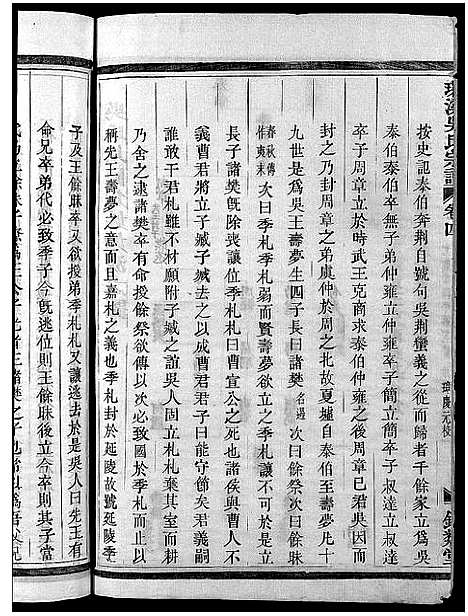 環溪吳氏宗譜 卷四
按史記泰伯奔荆自號句吳荆蠻義之從而歸者千餘家立爲吳
泰伯泰伯卒無子弟仲雍立仲雍卒子簡立簡卒子叔達立叔達
卒子周章立於時武王克商求泰伯仲雍之後得周章已吳因而
封之乃封周章之弟虞仲於周之北故夏墟自泰伯至壽夢凡十
九世是爲吳王壽夢生四子長曰諸樊名遏次曰餘祭次曰餘昧
春秋傳作夷末次曰季札季札弱而賢壽夢欲立之季札讓不可於是立
長子諸樊旣除喪讓位季札季札曰曹宣公之死也諸侯與曹人不
義曹君將立子臧子臧去之以成曹君君子曰能守節矣君義嗣
誰敢干君札雖不材願附子臧之誼吳人固立札札棄其室而耕
乃舍之逮諸樊卒有命授餘祭欲傳以次必致國於季札而止以
稱先王壽夢之意而且嘉札之義季札封於延陵故號延陵季
子及王餘昧卒又欲授弟季札札又讓逃去於是吳人曰先王有
命兄卒弟代必致季子今旣逃位則王餘昧後立今卒其子當